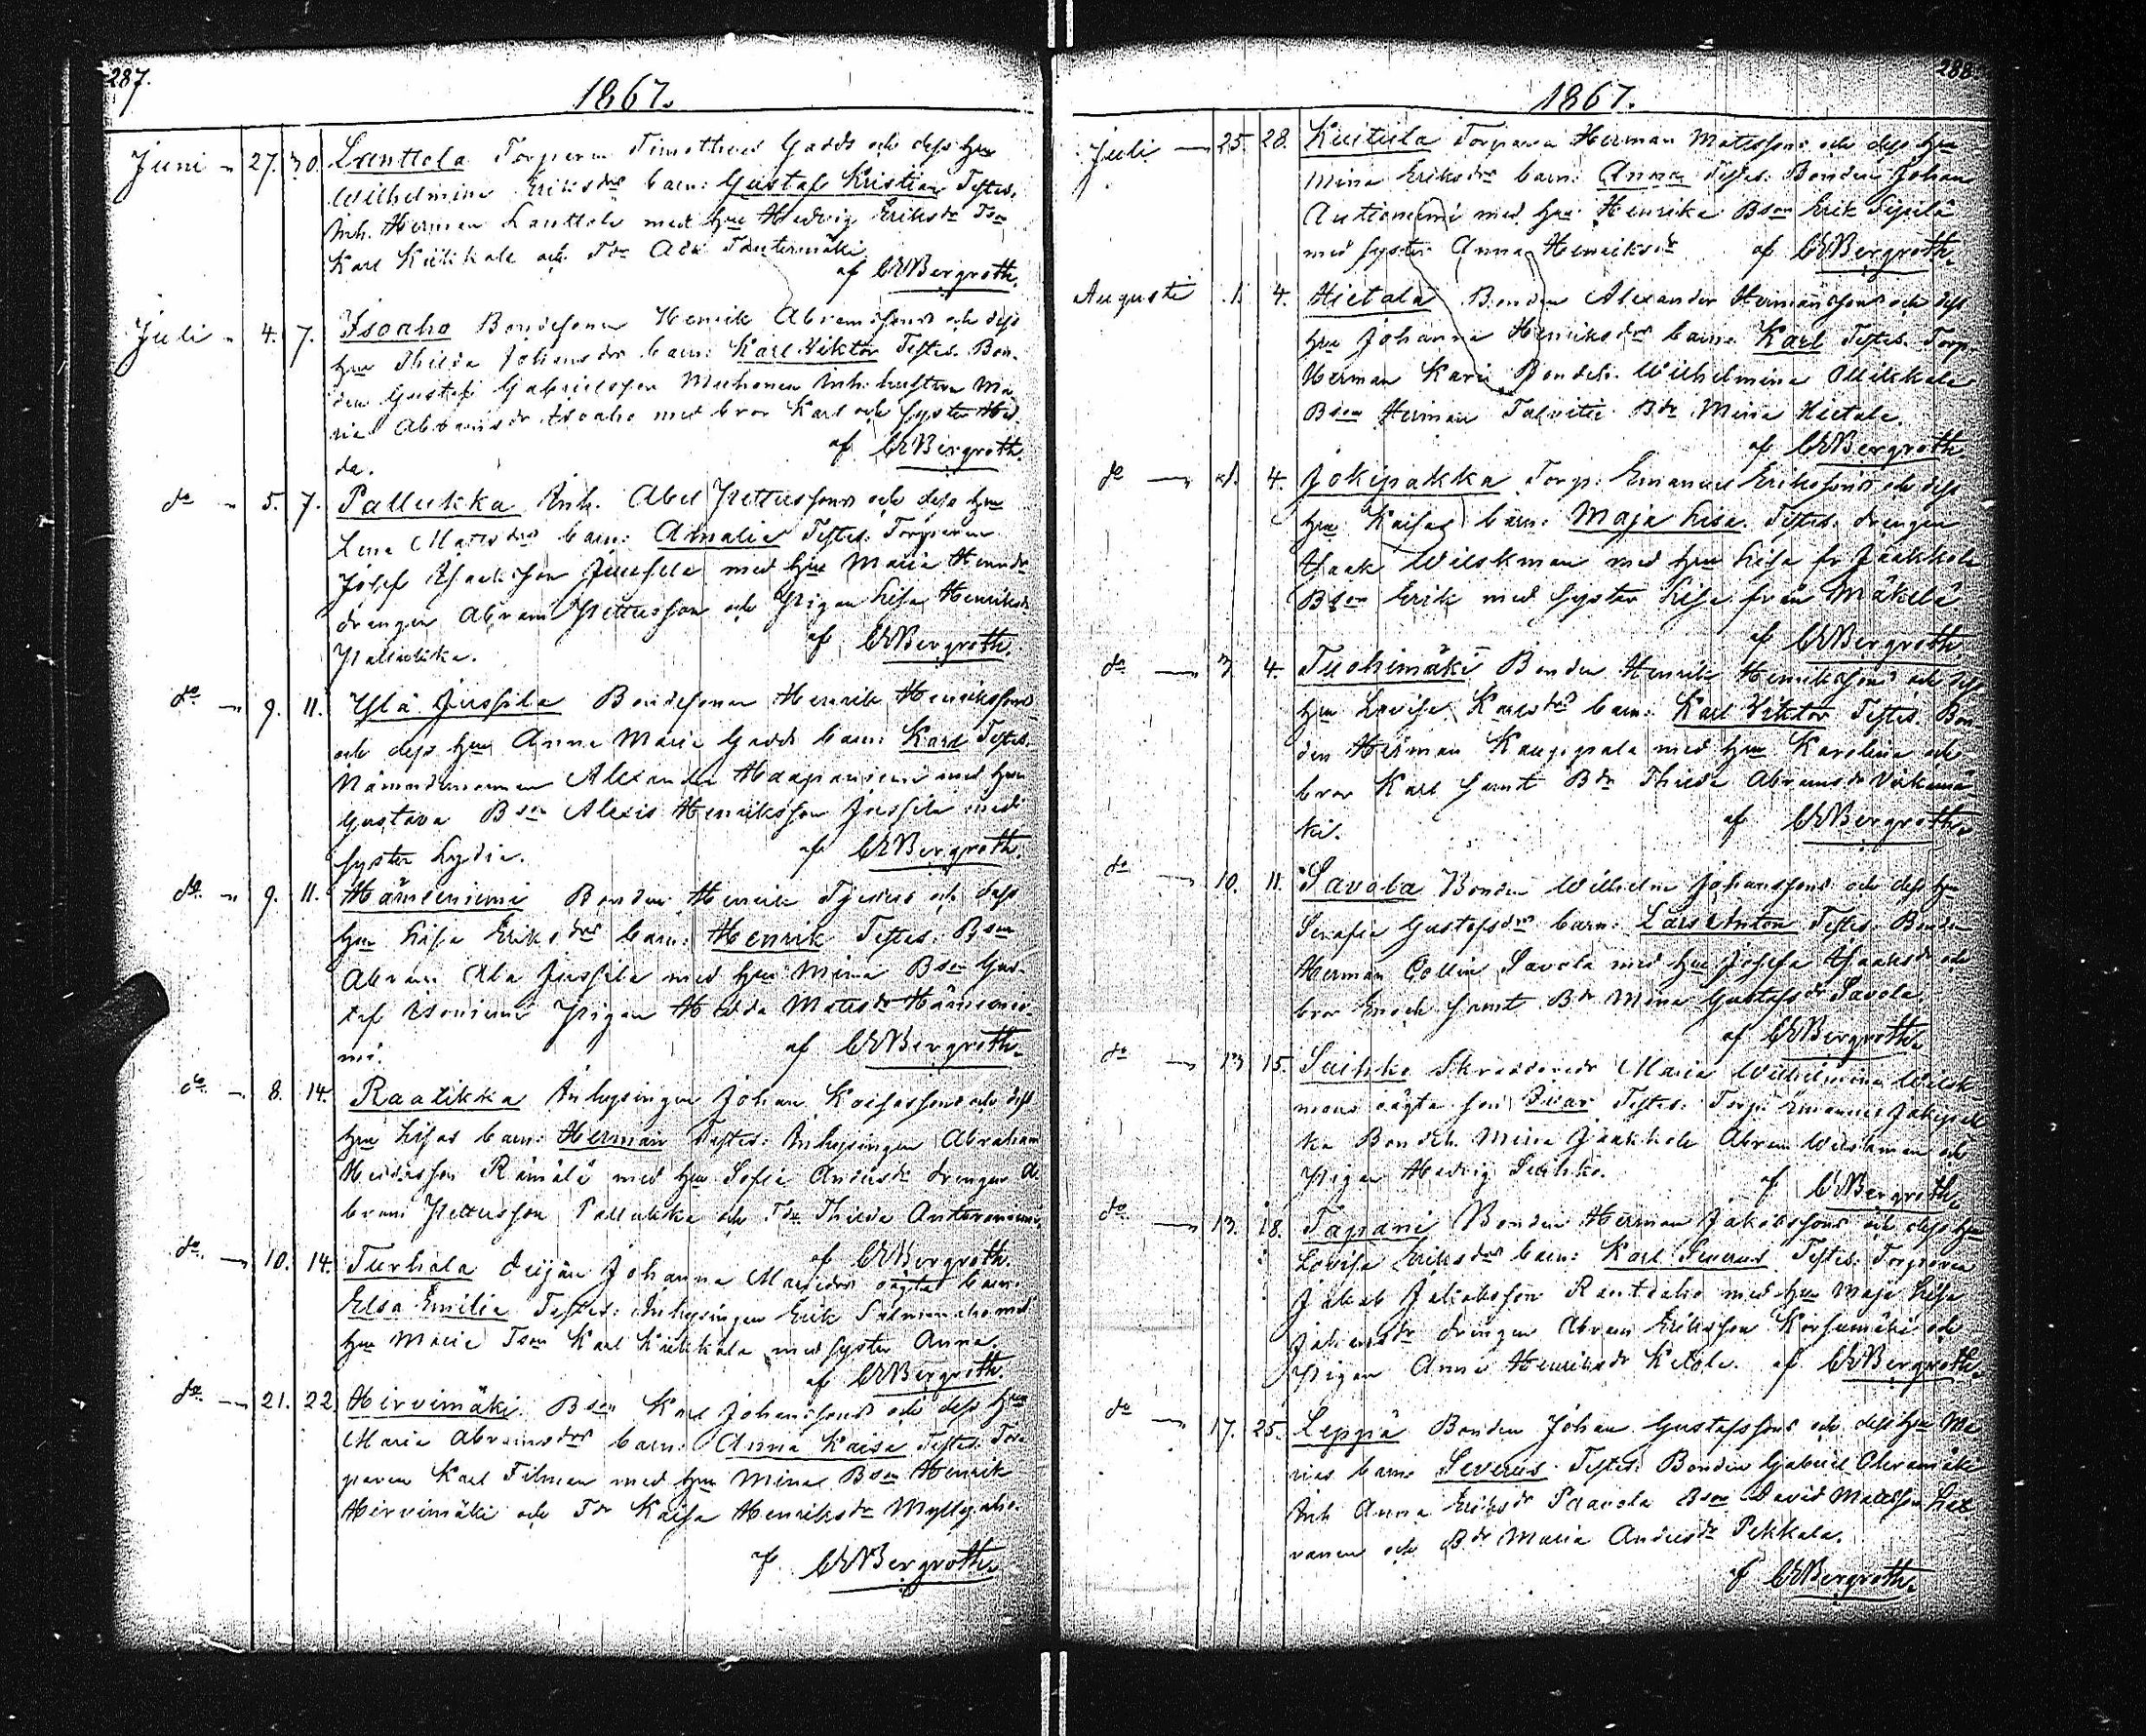 287.
1867.
Juni 27. 30. Lenttola Torparen Timotheus Gadds och dess hu
Wilhelmina Eriksdrs barn: Gustaf Kristian Testes.
Inh. Herman Lanttola med hu Hedvig Eriksdr Tson
Karl Kiikkala och Tdr Ada Tantermäki
af CWBergroth.
Juli 4. 7. Isoaho Bondesonen Henrik Abramssons och dess
hu Thilda Johansdrs barn: Karl Viktor Testes. Bon-
den Gustaf Gabrielsson inh. hustrun Ma
ria Abramsdr Isoaho med bror Karl och syster Hed-
da.
af CWBergroth.
do 5. 7. Pallukka Inh. Abel Pettersons och dess hu
Lena Matsdrs barn: Amalia Testes. Torparen
Josef Isaksson Jussila med hu Maria Henrdr
drengen Abram Pettersson och Pigan Lisa Henriksdr
Pallukka.
af CWBergroth.
do 9. 11. Ylä Jussila Bondesonen Henrik Henrikssons
och dess hu Anna Maria Gadds barn: Karl Testes.
Nämndemannen Alexander Haapaniemi med hu
Gustava Bson Alexis Henriksson Jussila med
syster Lydia.
af CWBergroth.
do 9. 11. Hämeniemi Bonden Henrik och dess
hu Lisa Eriksdrs barn: Henrik Testes: Bson
Abram Ala Jussila med hu Mina Bson Gus-
taf Isoniemi Pigan Hedda Matsdr Hämenie-
mi.
af CWBergroth.
do 8. 14. Raatikka Inhysingen Johan Kaisassons och dess
hu Lisas barn: Herman Testes: Inhysingen Abraham
Rämälä med hu Sofia Andersdr drengen A-
bram Pettersson Pallukka och Tdr Thilda
af CWBergroth.
do 10. 14. Turhala Deijan Johanna oägta barn:
Elsa Emilia Testes: Inhysingen Erik Salmenaho med
hu Maria Tson Karl Kiikkala med syster Anna.
af CWBergroth.
do 21. 22. Hirvimäki Bson Karl Johanssons och dess hu
Maria Abramsdrs barn: Anna Kaisa Testes. Tor-
paren Karl Filman med hu Mina Bson Henrik
Hirvimäki och Tdr Kaisa Henriksdr Myllyaho.
af CWBergroth.
288.
1867.
Juli 25. 28. Kuitula Torparen Herman Matssons och dess hu
Mina Eriksdrs barn: Anna Testes: Bonden Johan
Autioniemi med hu Henrika Bson Erik Sipilä
med syster Anna Henriksdr
af CWBergroth.
Augusti 1. 4. Hietala Bonden Alexander Hermanssons och dess
hu Johanna Henriksdrs barn: Karl Testes. Torp.
Herman Kari Bondeh. Wilhelmina Ollikkala
Bson Herman Talvitie Bdr Mina Hietala.
af CWBergroth.
do 1. 4. Jokipakka Torp. Emanuel Erikssons och dess
hu Kaisas barn: Maja Lisa Testes. drengen
Isaak Wilskman med hu Lisa fr Jaakkola
Bson Erik med syster Lisa från Mäkelä
af CWBergroth.
do 3. 4. Tuohimäki Bonden Henrik Henrikssons och dess
hu Lovisa Karlsdrs barn: Karl Viktor Testes. Bon
den Herman Kauppala med hu Karolina och
bror Karl samt Bdr Thilda Abramsdr
ki.
af CWBergroth.
do 10. 11. Savola Bonden Wilhelm Johanssons och dess hu
Serafia Gustafsdrs barn: Lars Anton Testes. Bonden
Herman Collin Savola med hu Josefa Isaksdr och
bror Enoch samt Bdr Mina Gustafsdr Savola.
af CWBergroth.
do 13. 15. Suihko Skreddaredr Maria Wilhelmina Wilsk-
mans oägta son Ivar Testes: Torp. Emanuel Jokipak
ka Bondeh. Mina Jaakkola Abram Wilskman och
Pigan Hedvig Suihko.
af CWBergroth.
do 13. 18. Tapani Bonden Herman Jakobssons och dess hu
Lovisa Eriksdrs barn: Karl Severus Testes: Torparen
Jakob Jakobsson Rantaaho med hu Maja Lisa
Johansdr drengen Abram Eriksson Korsumäki och
Pigan Anna Henriksdr Ketola. af CWBergroth.
do 17. 25. Leppä Bonden Johan Gustafssons och dess hu Ma
rias barn: Severus Testes: Bonden Gabriel
Inh Anna Eriksdr Paavola Bson David Matsson
vanen och Bdr Maria Andersdr Pekkala.
af CWBergroth.